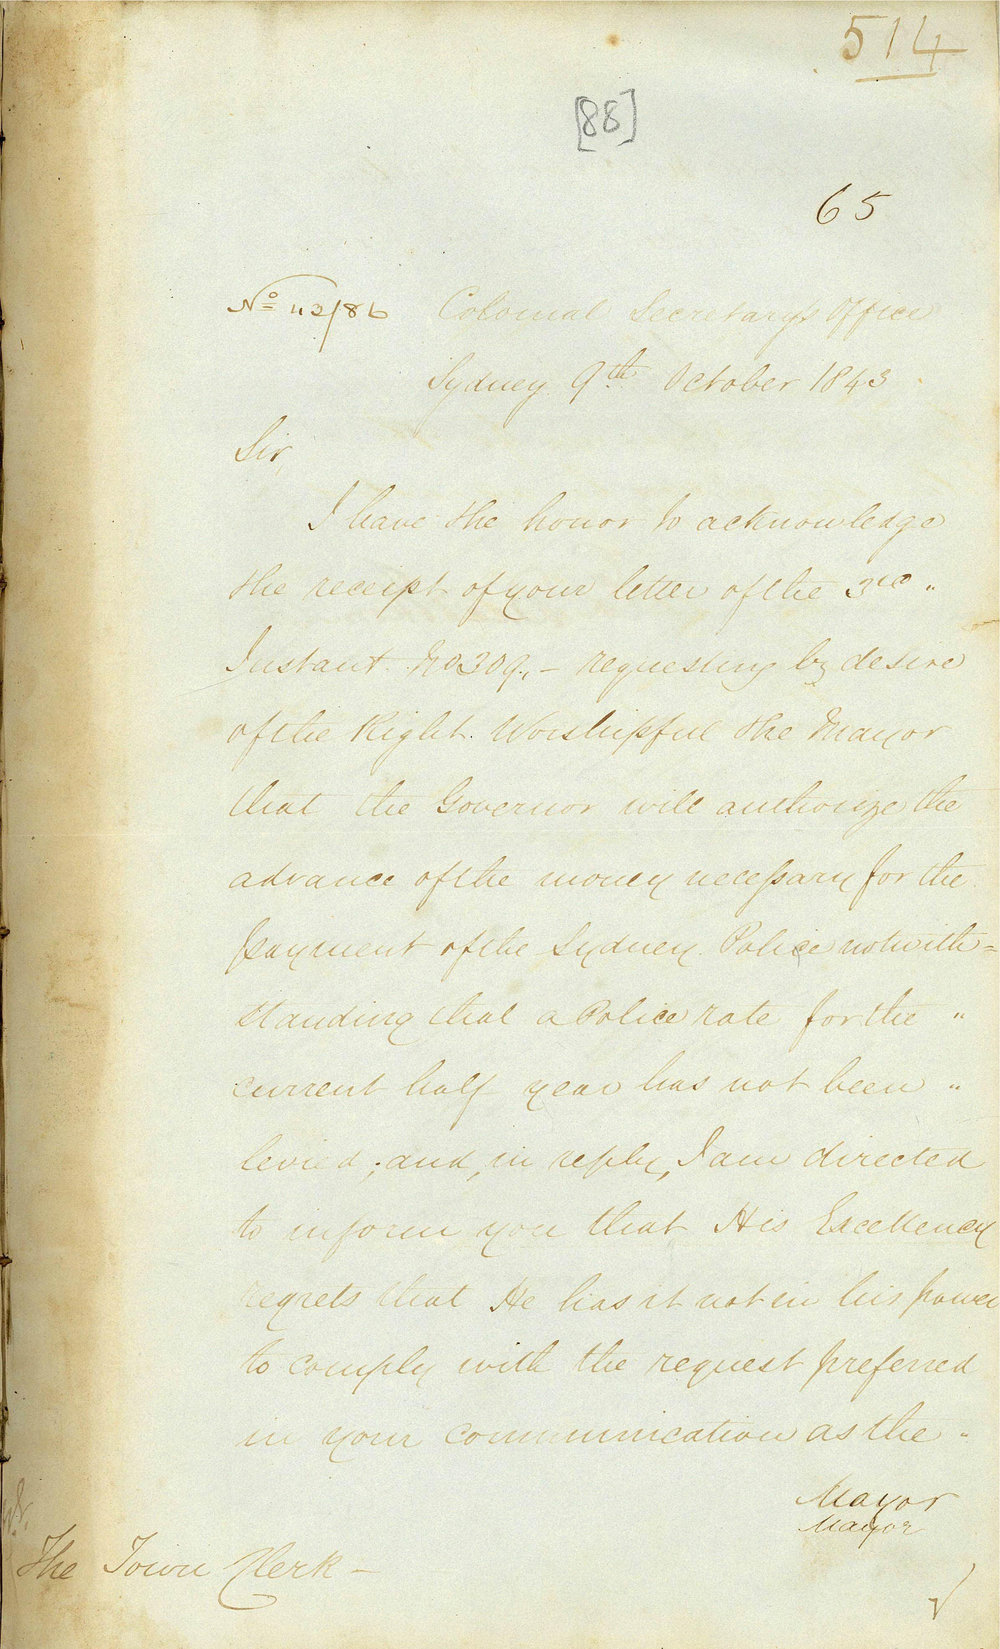 514
[88]
65
No 43/86 Colonial Secretary's Office
Sydney 9th October 1843
Sir,
I have the honor to acknowledge
the receipt of your letter of the 3rd "
Instant No 309, – requesting by desire
of the Right Worshipful the Mayor
that the Governor will authorize the
advance of the money necessary for the
payment of the Sydney Police notwith=
standing that a Police rate for the "
current half year has not been "
levied; and, in reply, I am directed
to inform you that His Excellency
regrets that He has it not in his power
to comply with the request preferred
in your communication as the -
Mayor
Mayor
The Town Clerk –